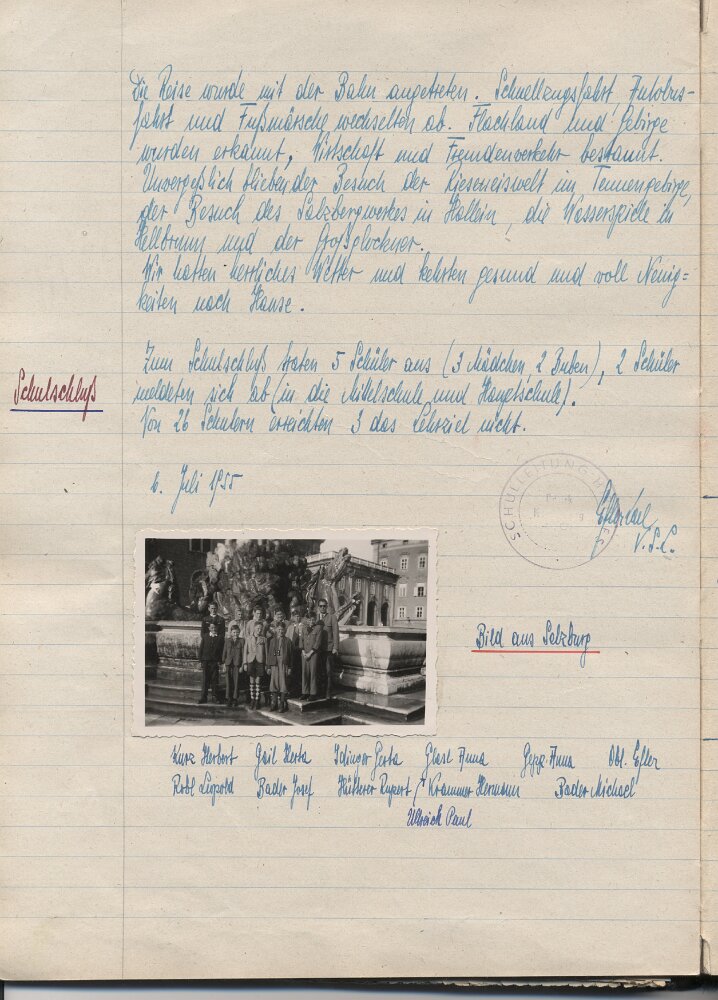 Die Reise wurde mit der Bahn angetreten. Schnellzugsfahrt, Autobus-
fahrt und Fußmärsche wechselten ab. Flachland und Gebirge
wurden erkannt, Wirtschaft und Fremdenverkehr bestaunt.
Unvergeßlich blieben der Besuch der Rieseneiswelt im Tennengebirge,
der Besuch des Salzbergwerkes in Hallein, die Wasserspiele in
Hellbrunn und der Großglockner.
Wir hatten herrliches Wetter und kehrten gesund und voll Neuig=
keiten nach Hause.
Zum Schulschluß traten 5 Schüler aus (3 Mädchen, 2 Buben), 2 Schüler
Schulschluß
meldeten sich ab (in die Mittelschule und Hauptschule).
Von 26 Schülern erreichten 3 das Lehrziel nicht.
6. Juli 1955
SCHULLEITUNG
V.S.L.
Bild aus Salzburg
Kurz Herbert Gail Herta Idinger Gerta Glasl Anna Anna Obl. Efler
Robl Leopold Bader Josef Hütterer Rupert Krammer Hermann Bader Michael
Ullreich Paul